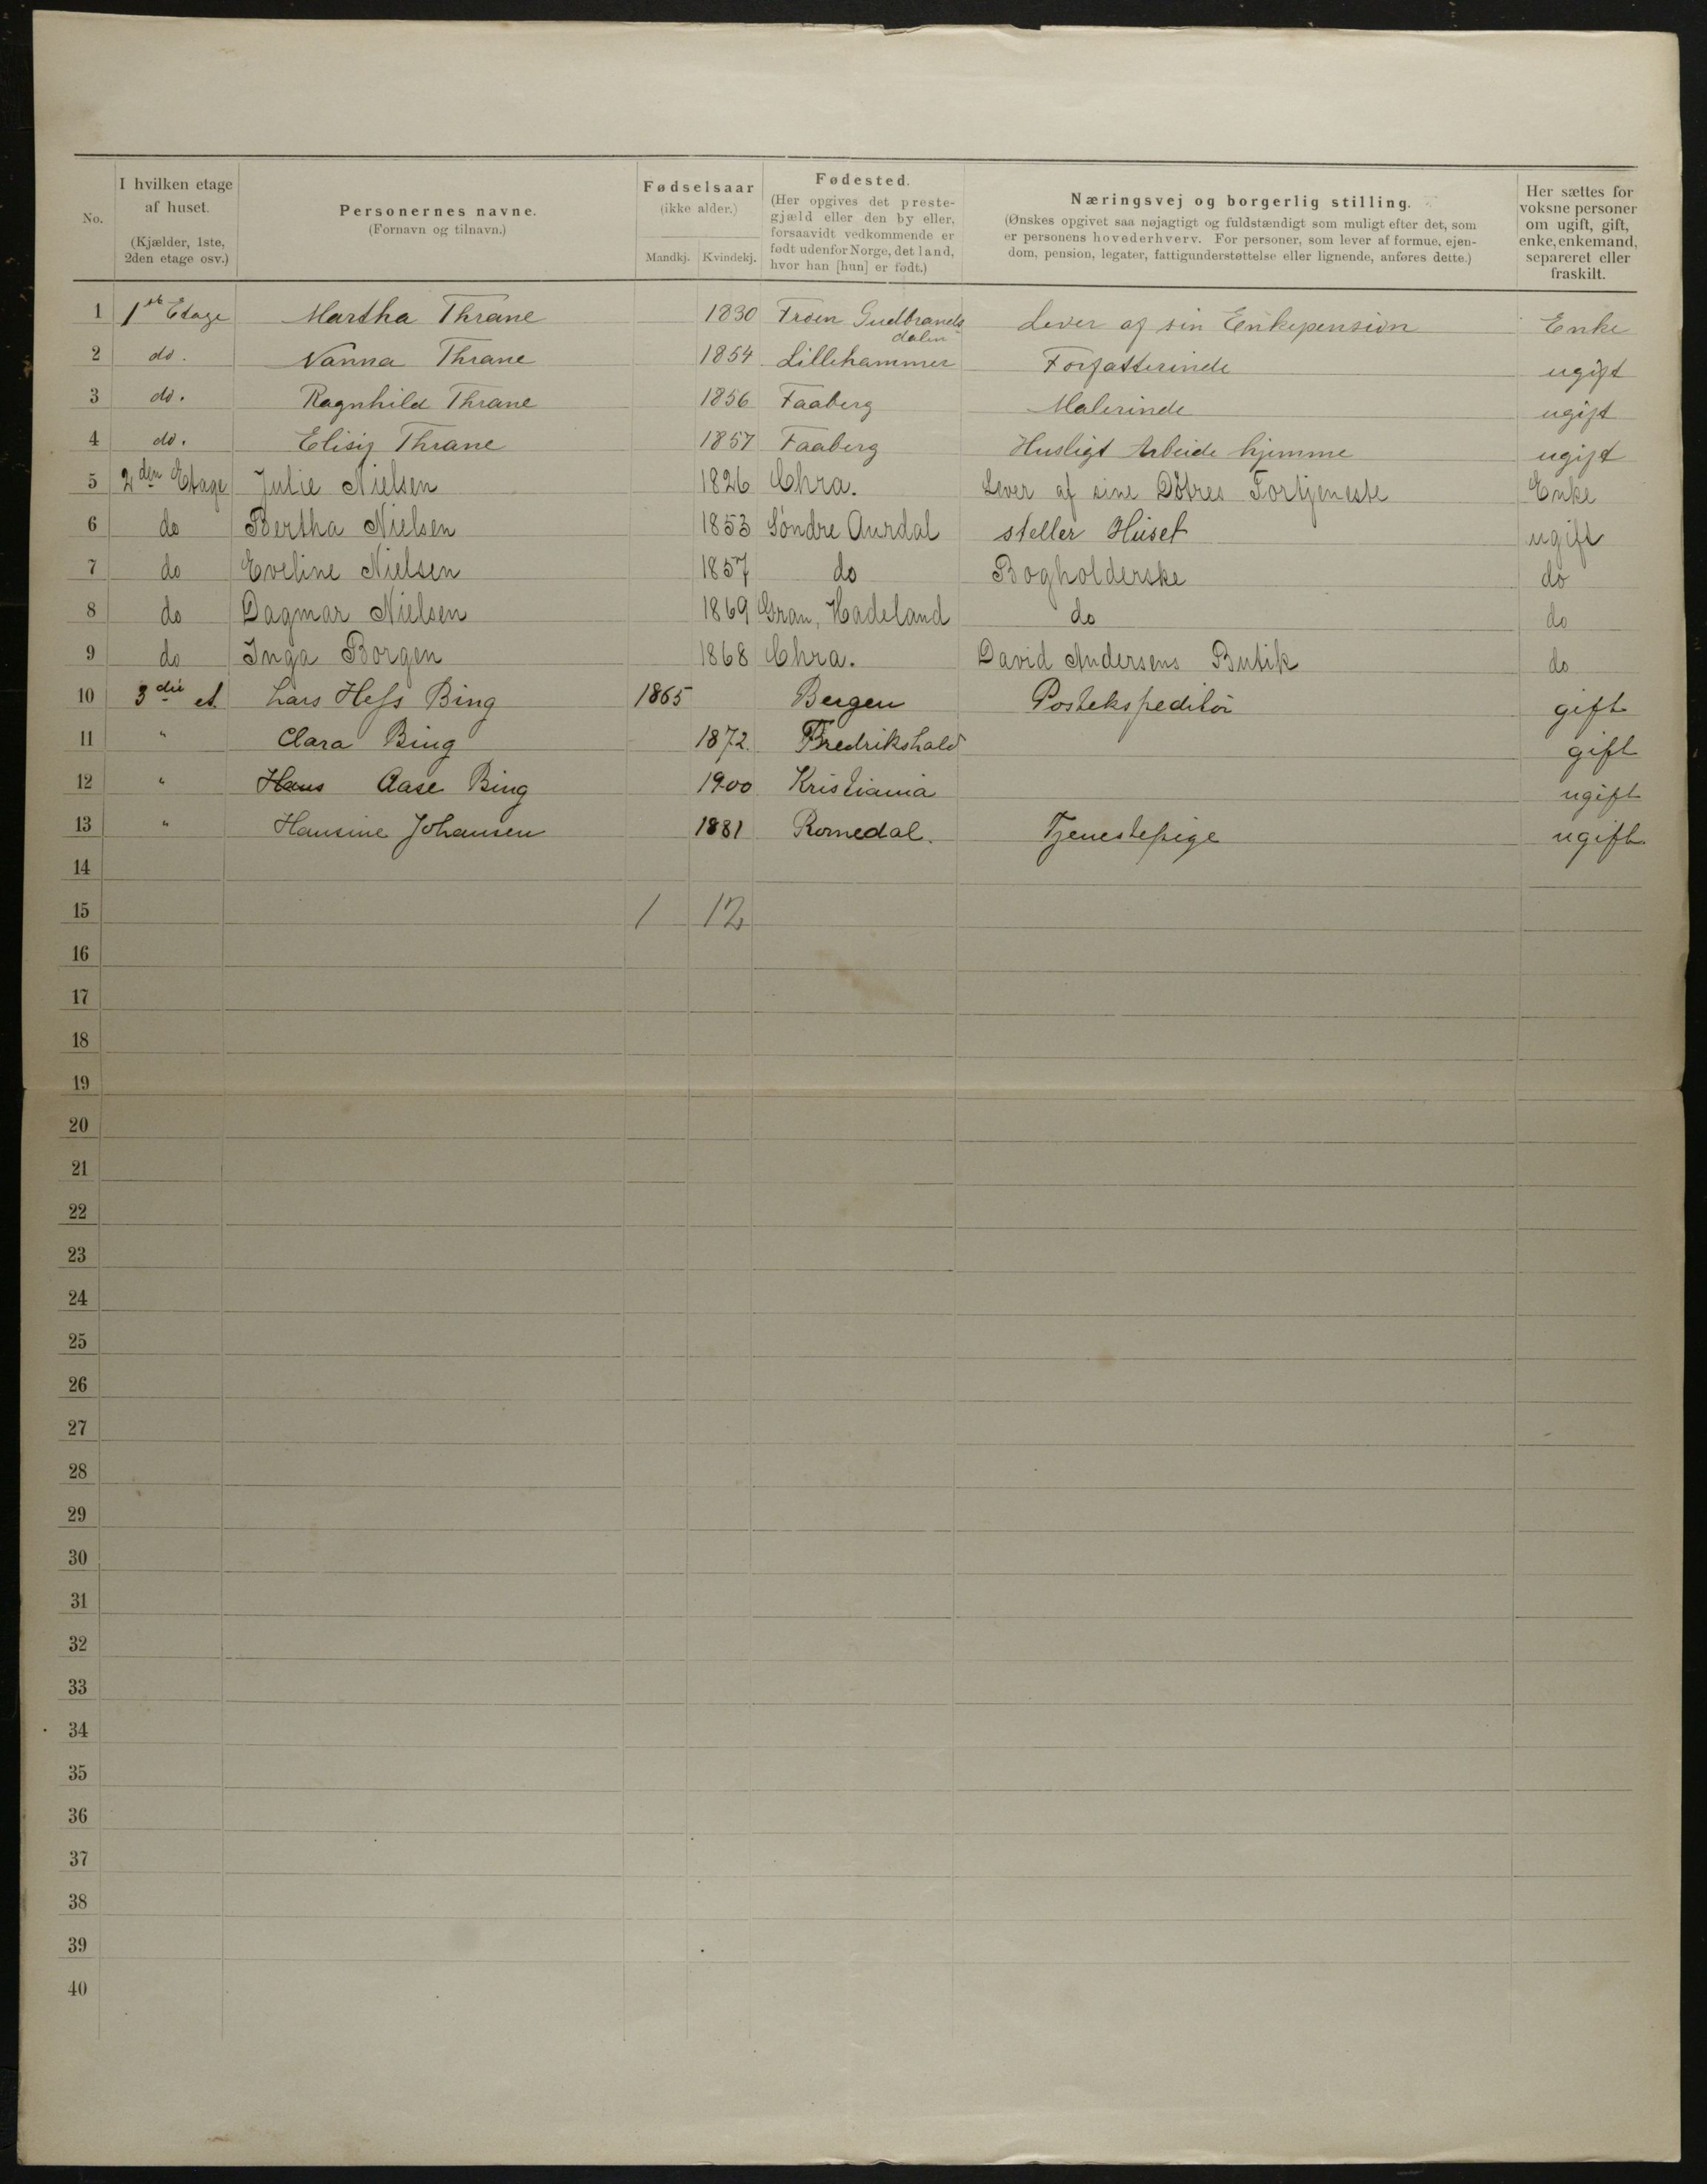 No. | I hvilken etage af huset. (Kjælder, 1ste, 2den etage osv.) | Personernes navne. (Fornavn og tilnavn.) | Fødselsaar (ikke alder.) Mandkj. | Kvindekj. | Fødested. (Her opgives det prestegjæld eller den by eller, forsaavidt vedkommende er født udenfor Norge, det land, hvor han [hun] er født.) | Næringsvej og borgerlig stilling. (Ønskes opgivet saa nøjagtigt og fuldstændigt som muligt efter det, som er personens hovederhverv. For personer, som lever af formue, ejendom, pension, legater, fattigunderstøttelse eller lignende, anføres dette.) | Her sættes for voksne personer om ugift, gift, enke, enkemand, separeret eller fraskilt.
1 | 1ste Etage | Martha Thrane | | 1830 | Froen Gudbrandsdalen | Lever af sin Enkepension | Enke
2 | do. | Nanna Thrane | | 1854 | Lillehammer | Forfatterinde | ugift
3 | do. | Ragnhild Thrane | | 1856 | Faaberg | Malerinde | ugift
4 | do. | Elisiv Thrane | | 1857 | Faaberg | Husligt Arbeide hjemme | ugift
5 | 2den Etage | Julie Nielsen | | 1826 | Chra. | Lever af sine Døtres Fortjeneste | Enke
6 | do | Bertha Nielsen | | 1853 | Søndre Aurdal | steller Huset | ugift
7 | do | Eveline Nielsen | | 1857 | do | Bogholderske | do
8 | do | Dagmar Nielsen | | 1869 | Gran, Hadeland | do | do
9 | do | Inga Borgen | | 1868 | Chra. | David Andersens Butik | do
10 | 3die et. | Lars Hess Bing | 1865 | | Bergen | Postekspeditør | gift
11 | " | Clara Bing | | 1872. | Fredrikshald | | gift
12 | " | Hans Aase Bing | | 1900 | Kristiania | | ugift
13 | " | Hansine Johansen | | 1881 | Romedal. | Tjenestepige | ugift.
14
15 | | | 1 | 12
16
17
18
19
20
21
22
23
24
25
26
27
28
29
30
31
32
33
34
35
36
37
38
39
40